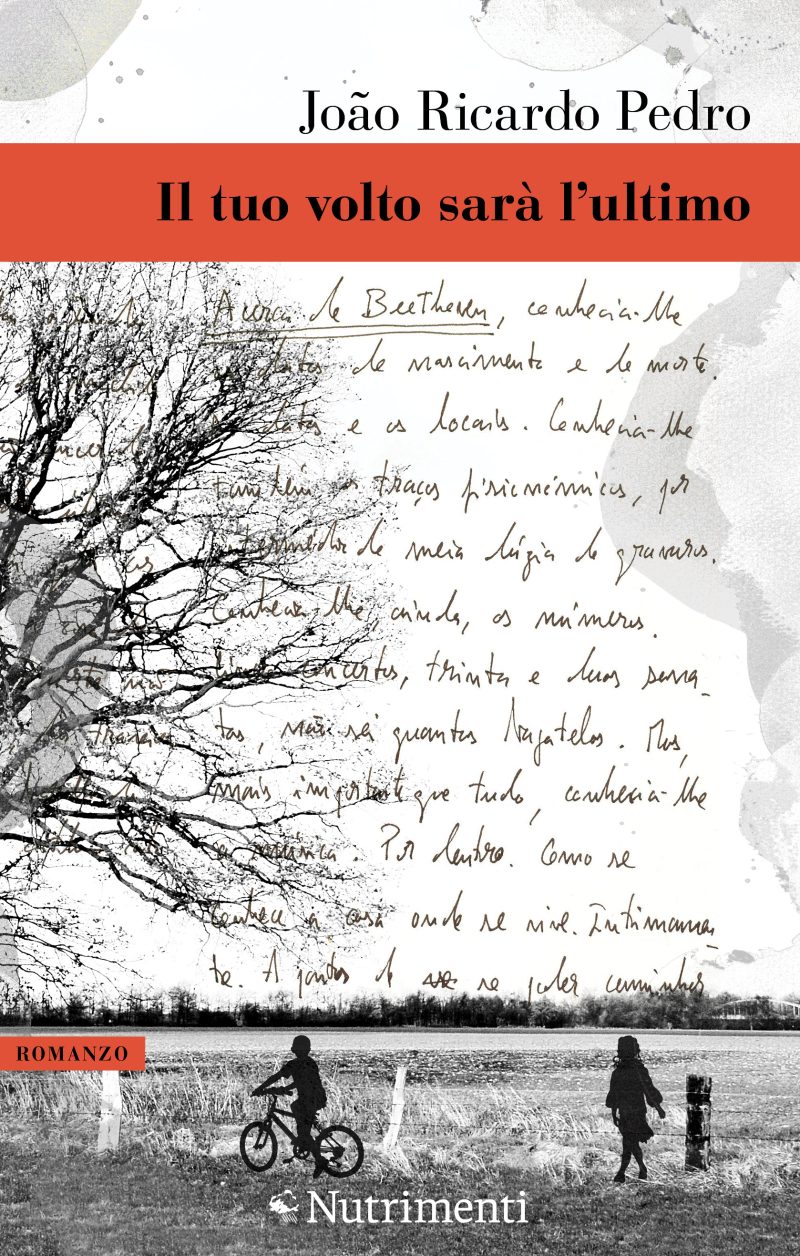 João Ricardo Pedro
Il tuo volto sarà l'ultimo
Acerca de Beethoven, conhecia-lhe
as datas de nascimento e de morte.
as datas e os locais. Conhecia-lhe
também os traços fisionómicos, por
intermédio de meia dúzia de gravuras.
Conhecia-lhe, ainda, os números.
cinco concertos, trinta e duas sona-
tas, não sei quantas bagatelas. Mas,
mais importante que tudo, conhecia-lhe
a música. Por dentro. Como se
conhece a casa onde se vive. Intimamen-
te. A ponto de se poder caminhar
ROMANZO
Nutrimenti